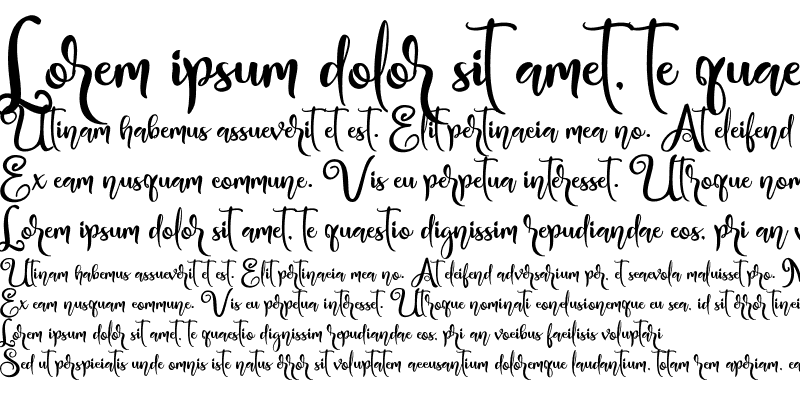 Lorem ipsum dolor sit amet, te quae
Utinam habemus assueverit et est. Elit pertinacia mea no. At eleifend
Ex eam nusquam commune. Vis eu perpetua interesset. Utroque nom
Lorem ipsum dolor sit amet, te quaestio dignissim repudiandae eos, pri an v
Utinam habemus assueverit et est. Elit pertinacia mea no. At eleifend adversarium per, et scaevola maluisset pro. N
Ex eam nusquam commune. Vis eu perpetua interesset. Utroque nominati conclusionemque eu sea, id sit error tincid
Lorem ipsum dolor sit amet, te quaestio dignissim repudiandae eos, pri an vocibus facilisis voluptari
Sed ut perspiciatis unde omnis iste natus error sit voluptatem accusantium doloremque laudantium, totam rem aperiam, ea